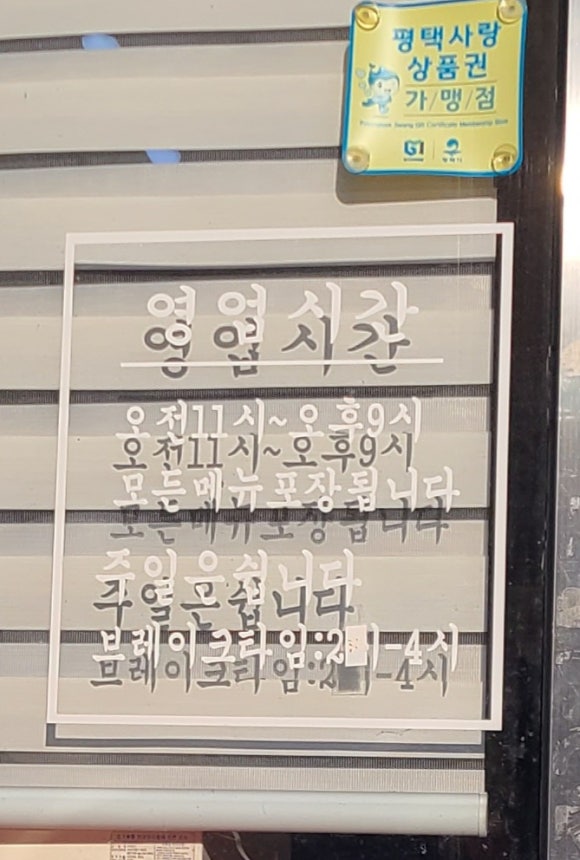 평택사랑
상품권
가/맹/점
영업시간
오전11시~오후9시
모든메뉴포장됩니다
주일은쉽니다
브레이크타임:2시-4시